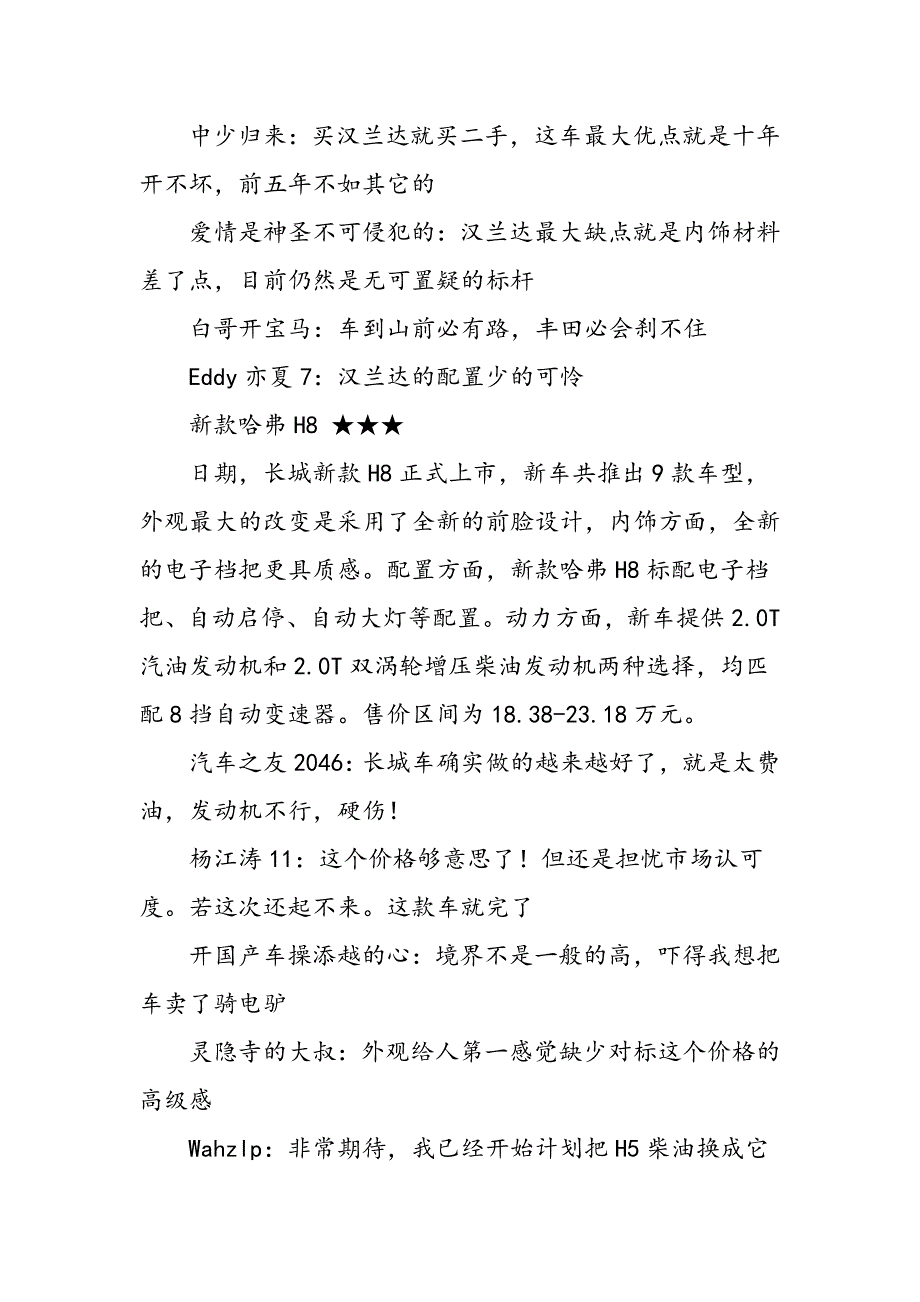 中少归来：买汉兰达就买二手，这车最大优点就是十年
开不坏，前五年不如其它的
爱情是神圣不可侵犯的：汉兰达最大缺点就是内饰材料
差了点，目前仍然是无可置疑的标杆
白哥开宝马：车到山前必有路，丰田必会刹不住
Eddy 亦夏 7：汉兰达的配置少的可怜
新款哈弗 H8 ★★★
日期，长城新款 H8 正式上市，新车共推出 9 款车型，
外观最大的改变是采用了全新的前脸设计，内饰方面，全新
的电子档把更具质感。配置方面，新款哈弗 H8 标配电子档
把、自动启停、自动大灯等配置。动力方面，新车提供 2.0T
汽油发动机和 2.0T 双涡轮增压柴油发动机两种选择，均匹
配 8 挡自动变速器。售价区间为 18.38-23.18 万元。
汽车之友 2046：长城车确实做的越来越好了，就是太费
油，发动机不行，硬伤！
杨江涛 11：这个价格够意思了！但还是担忧市场认可
度。若这次还起不来。这款车就完了
开国产车操添越的心：境界不是一般的高，吓得我想把
车卖了骑电驴
灵隐寺的大叔：外观给人第一感觉缺少对标这个价格的
高级感
Wahzlp：非常期待，我已经开始计划把 H5 柴油换成它